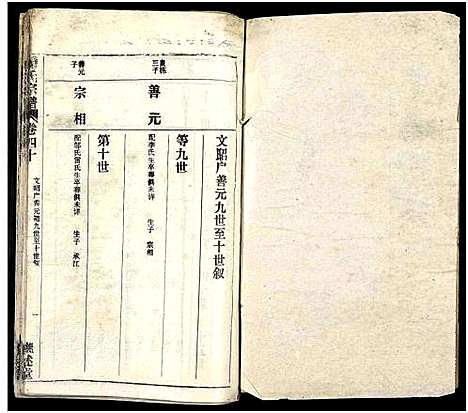 文昭户善元九世至十世叙
第九世
三子
善元
配李氏生卒葬俱未详 生子 宗相
第十世
善元子
宗相
配邹氏雷氏生卒葬俱未详 生子 承江
氏宗谱
卷四十
文昭户善元九世至十世叙
一
述堂